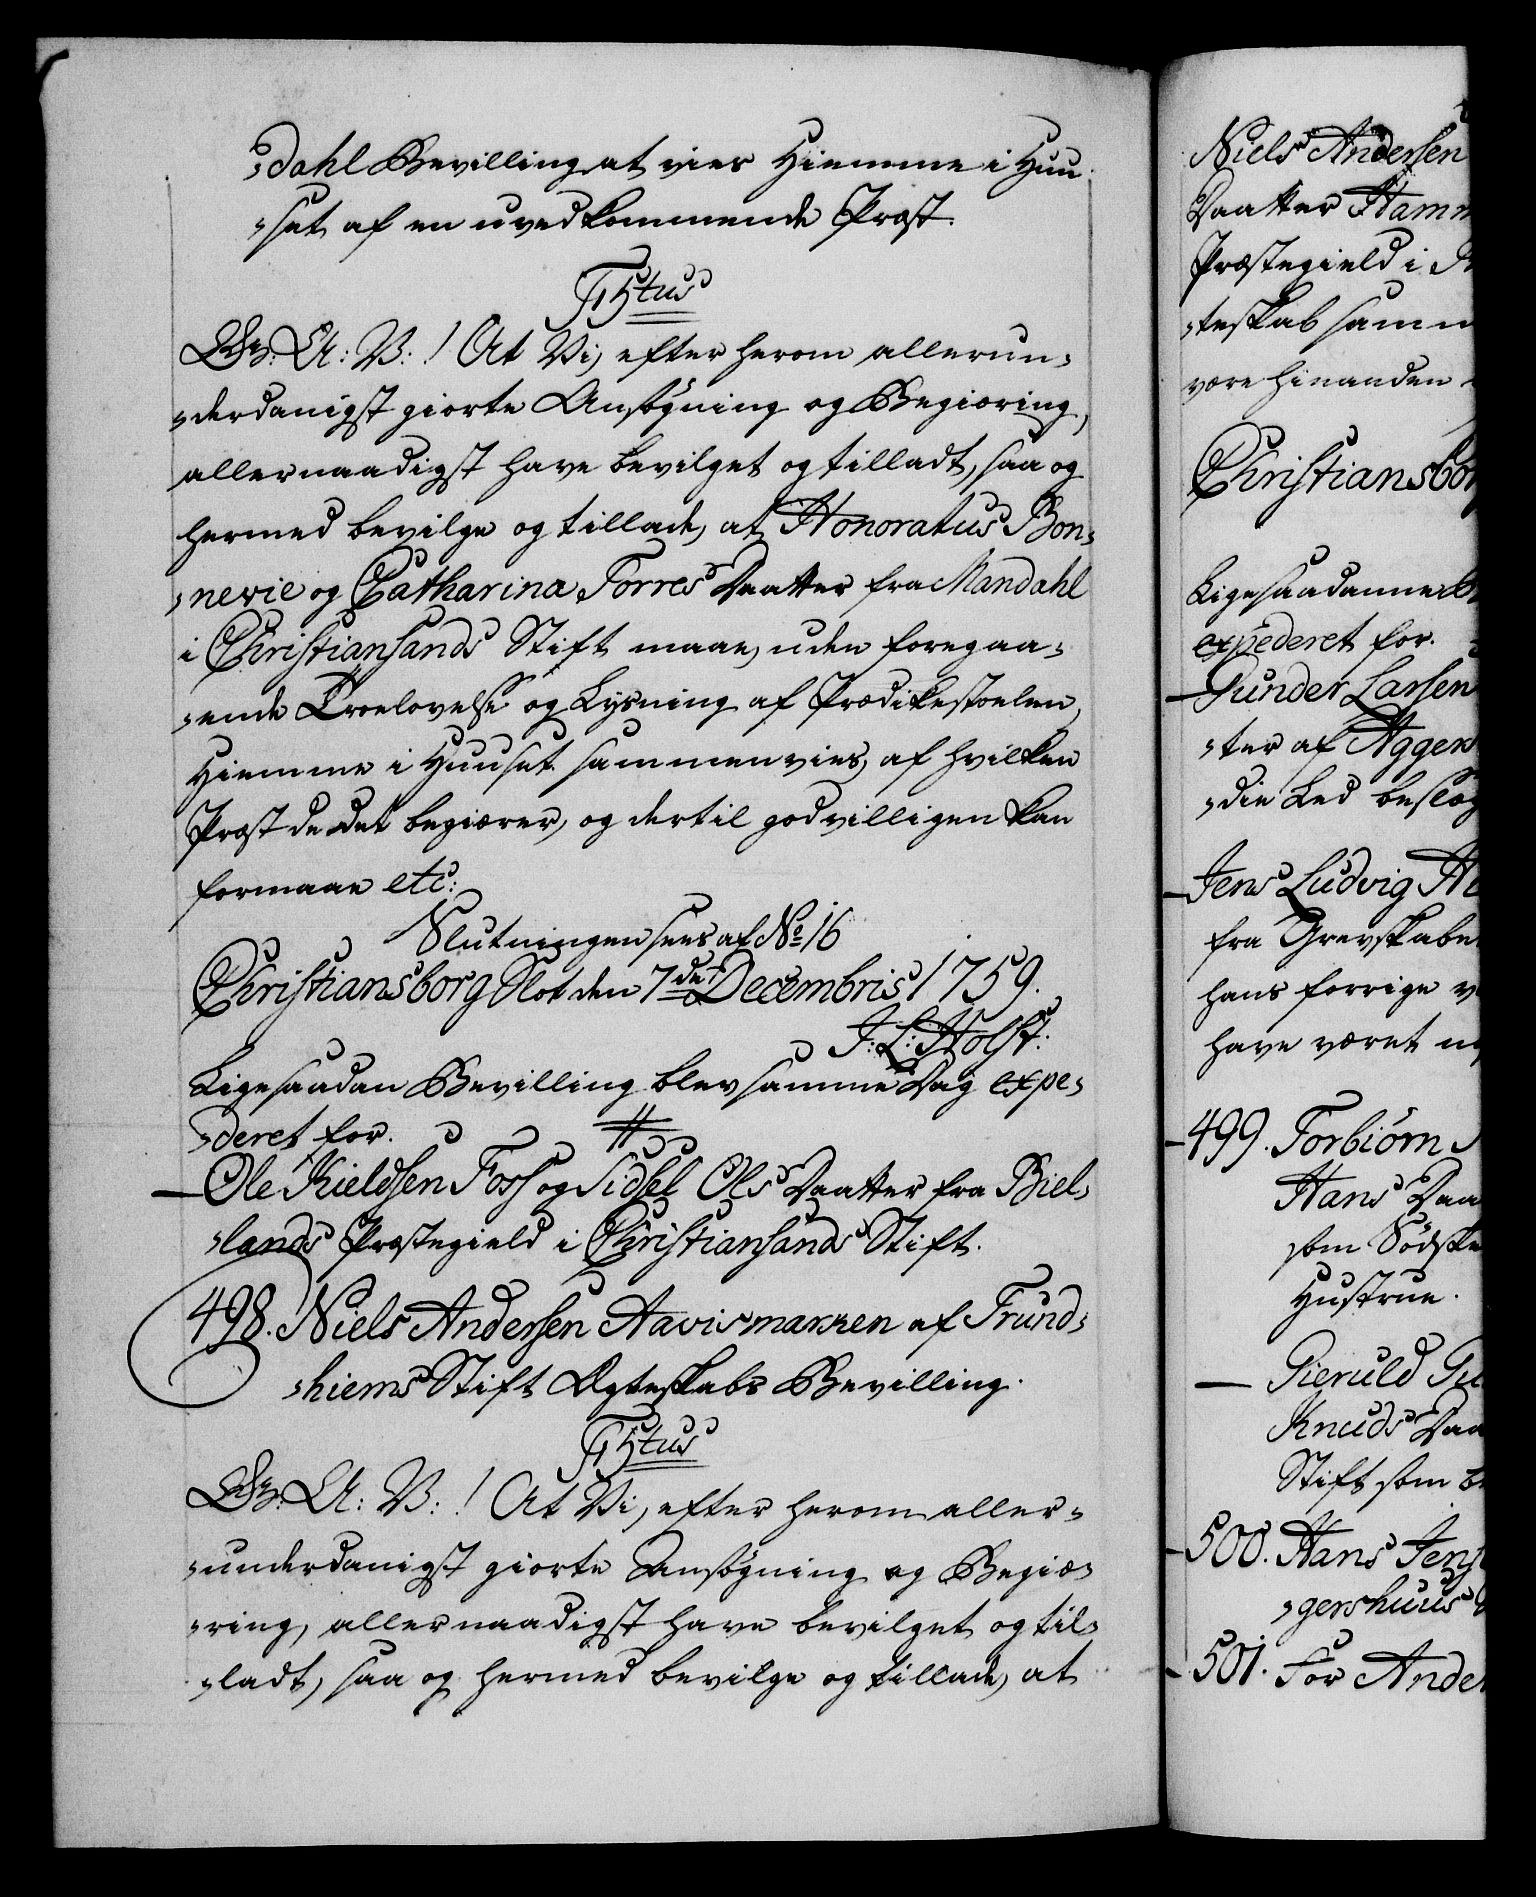 =dahl Bevilling at vies Hiemme i Huu=
=set af en uvedkommende Præst.
F5tus
Gr: A: V: ! At Vi, efter herom allerun=
=derdanigst giorte Ansögning og Begiæring,
allernaadigst have bevilget og tilladt, saa og
hermed bevilge og tillade, at Honoratus Bon=
=nevie og Catharina Torres Daatter fra Mandahl
i Christiansands Stift maae, uden foregaa=
=ende Troelovelse og Lysning af Prædikestoelen,
Hiemme i Huuset sammenvies, af hvilken
Præst de det begiærer, og dertil godvilligen kan
formaae etc:
Slutningen sees af No 16
Christiansborg Slot den 7de Decembris 1759.
J: L: Holst:
Ligesaadan Bevilling blev samme Dag expe=
=deret for.
— Ole Kieldsen Foss og Sidsel Ols Daatter fra Biel=
=lands Præstegield i Christiansands Stift.
498. Niels Andersen Aavismarken af Trund=
=hiems Stift Ægteskabs Bevilling.
F5tus
Gr: A: V: ! At Vi, efter herom aller=
=underdanigst giorte Ansögning og Begiæ=
=ring, allernaadigst have bevilget og til=
=ladt, saa og hermed bevilge og tillade, at
Niels Andersen
Daatter Hamm
Præstegield i
=teskab samm
være hinanden
Christiansbor
Ligesaadanne
expederet for.
— Gunder Larsen
=ter af Agger
=die Led beslæg
— Jens Ludvig
fra Grevskabe
hans forrige
have været
— 499. Torbiörn
Hans Daa
som Södske
Hustrue.
— Gieruld Gu
Knuds Daa
Stift som
— 500. Hans Jens
=gershuus
— 501. For Ander